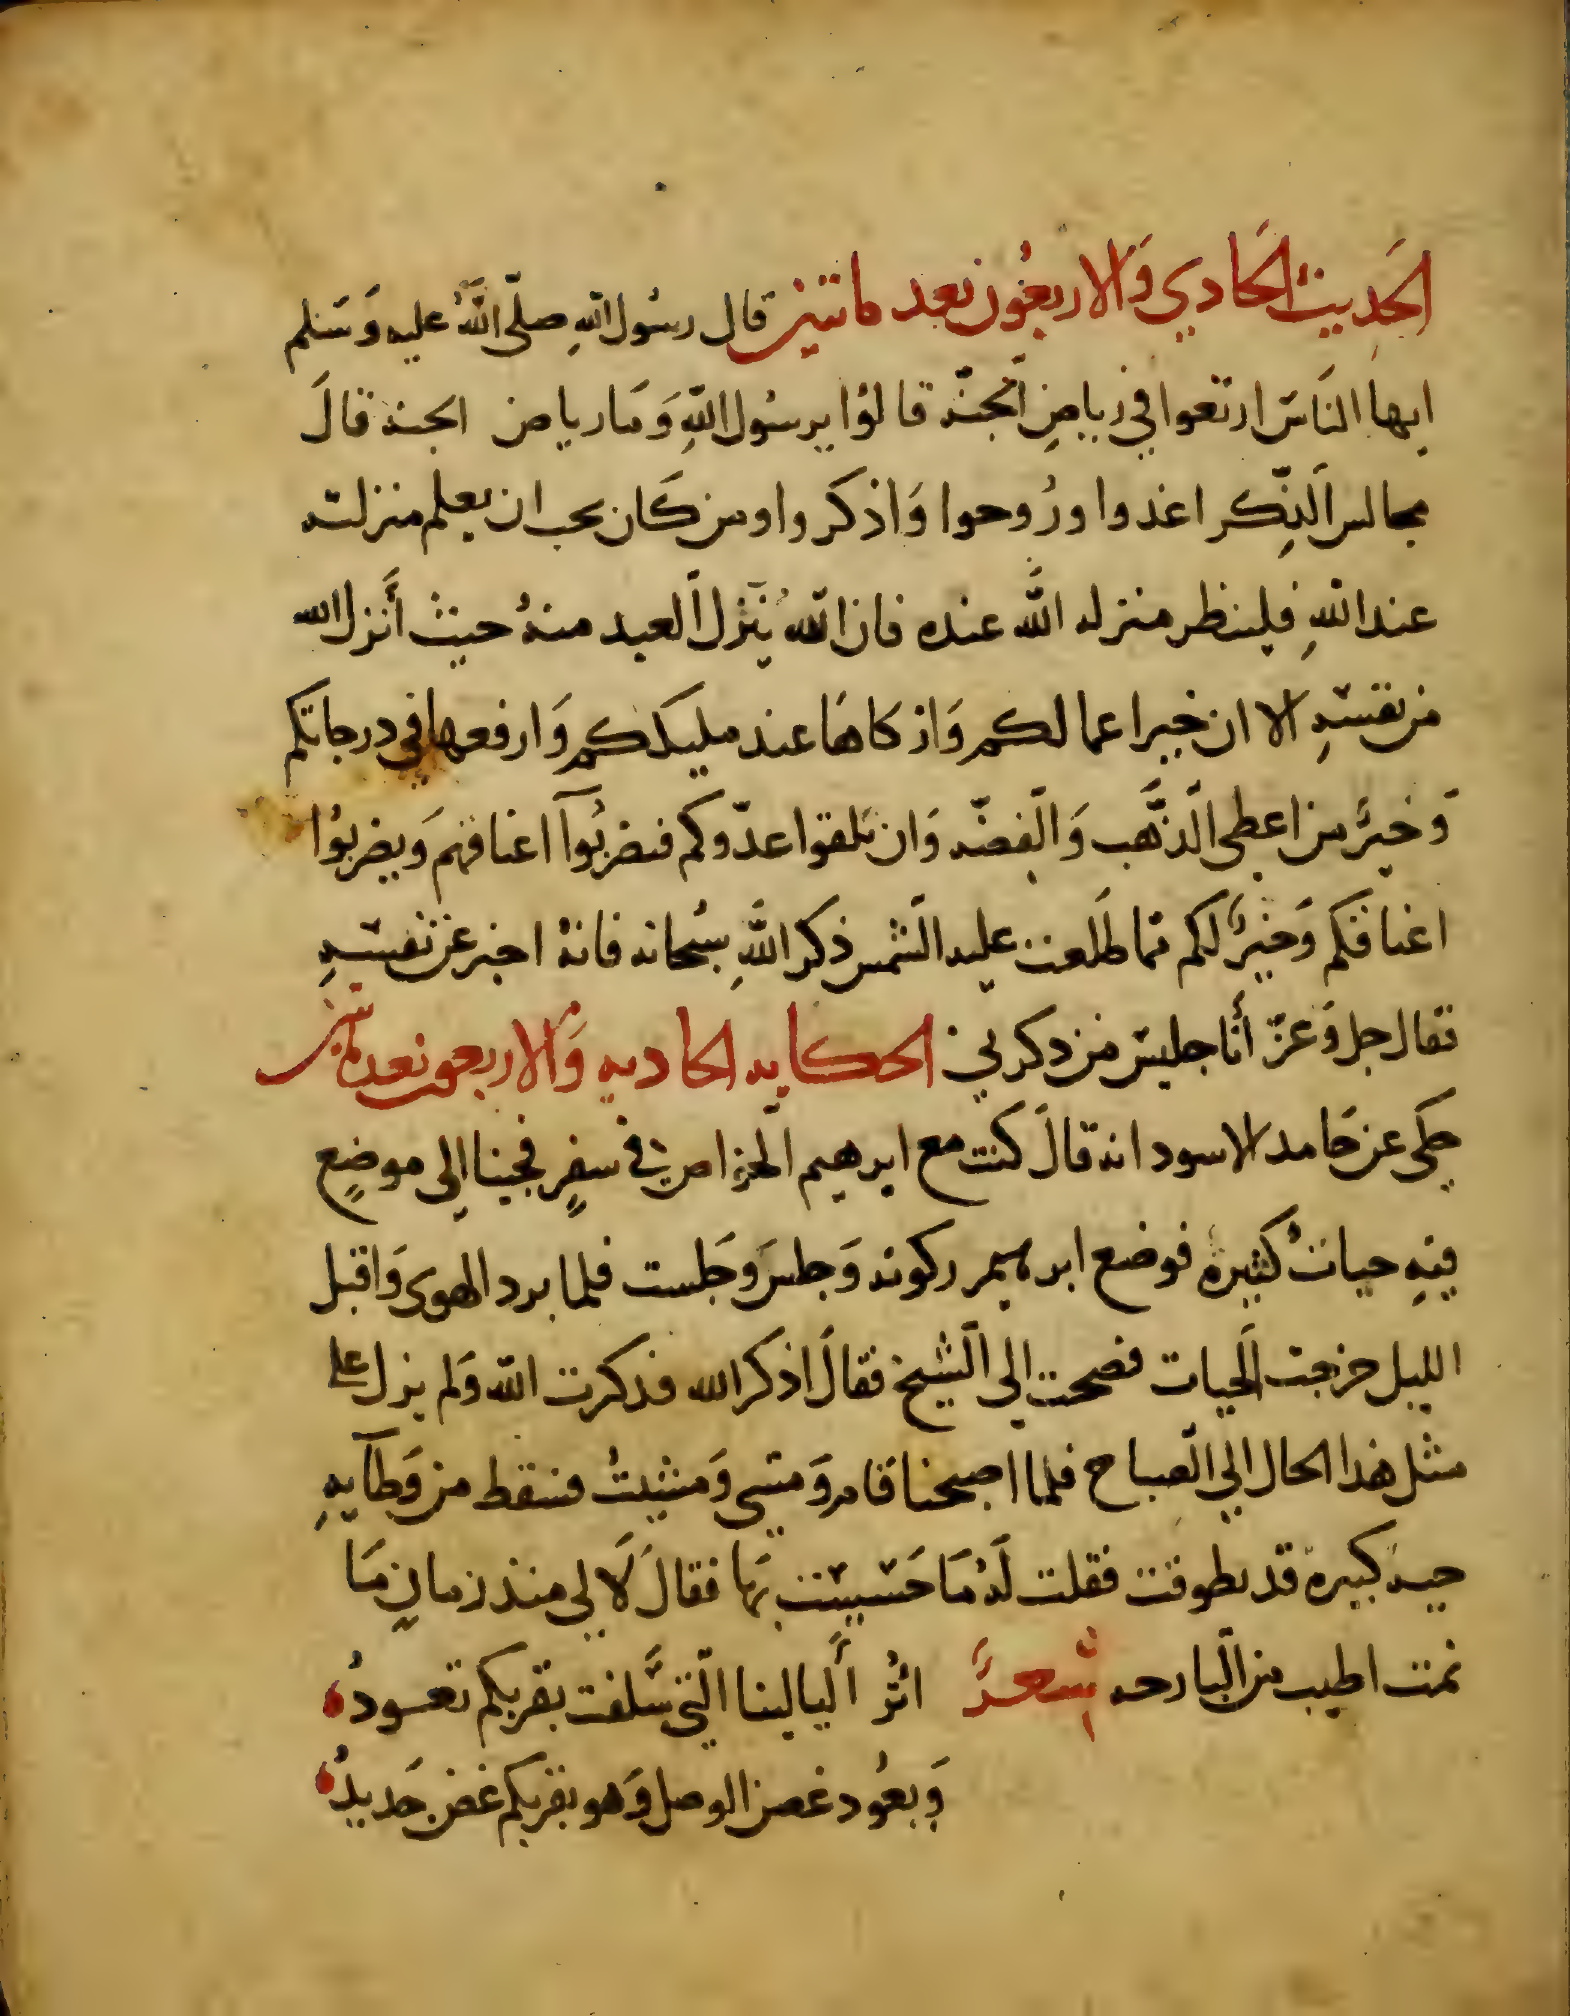 الحَديث الحَادي وَالاربعُون بعد ماتين قال رسُول اللهِ صلّى اللهُ عليه وَسَلم
ايها النَاسَ ارتعوا في رياضِ الجنّه قالوُا يرسُول اللهِ وَمَا رياض الجنه قالَ
مجالس الذِّكر اغدوا ورُوحوا وَاذكروا ومن كَان يحب ان يعلم منزلته
عند اللهِ فلينظر منزله اللَّه عنده فان اللّه يُنَزل العبد منهُ حيث أَنزل الله
من نفسهِ الا ان خير اعمالكم وَازكاهَا عند مليككم وَارفعها في درجاتكم
وَخيرٌ من اعطى الذَّهب وَالفضّه وَان تلقوا عدّوكم فتضربُوآ اعناقهم وَيضربُوا
اعناقكم وَخيرٌ لكم مّما طَلعت عليه الشمس ذكر اللَّهِ سبُحانه فانهُ اخبر عن نفسهِ
فقال جل وَعزّ أنَا جليسَ من دكرني الحكايه الحاديه وَالاربعون بعد ماتين
حكى عن حَامد الاسود انه قالَ كنت مع ابرهيم الخواص في سفرٍ فجينا الِى موضعٍ
فيهِ حيات كثيرة فوضع ابرهيم ركوته وَجلسَ وجَلست فلما برد الهوى وَاقبل
الليل خرجت الحيات فصحت الى الشيخ فقالَ اذكر الله فذكرت اللّه وَلم يزل على
مثل هذا الحال الي الصباح فلما اصبحنا قام وَمشى وَمشيتُ فسقط من وَطآيهِ
حيه كبيره قد تطوقت فقلت لَهُ مَا حَسيت بهَا فقالَ لَا لي منذ زمانٍ مَا
نمت اطيب من البارحه شعرٌ اترُ أليالينا الّتي سَّلفت بقربكم تعسودُ
وَيعُود غصن الوصل وَهو بقربكم غض جَديدُ